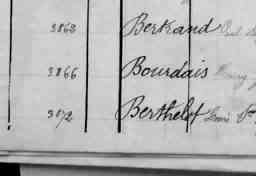 3862 Bertrand
3866 Bourdais
3872 Berthelot